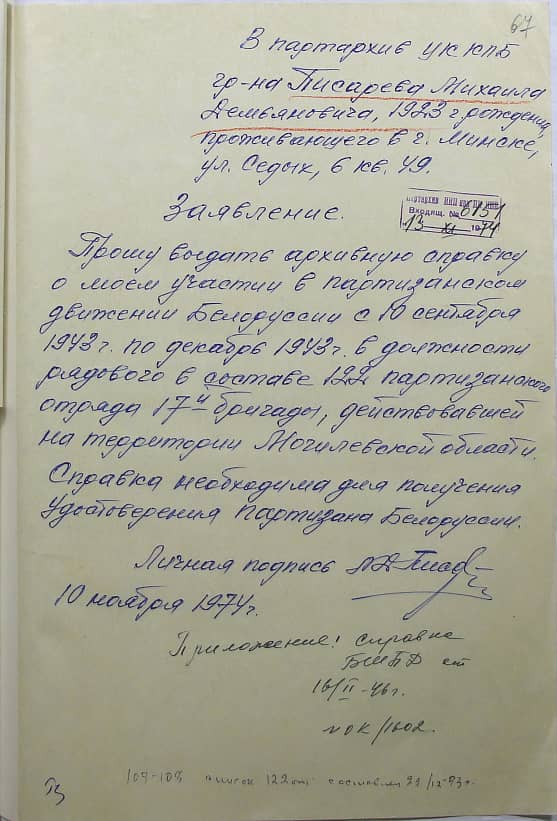 67
В партархив ЦК КПБ
гр-на Писарева Михаила
Демьяновича, 1923 г. рождения,
проживающего в г. Минске,
ул. Седых, 6 кв. 49.
Партархив ИИП при ЦК КПБ
Входящ. № 6151
13 XI 1974
Заявление.
Прошу выдать архивную справку
о моем участии в партизанском
движении Белоруссии с 10 сентября
1943 г. по декабрь 1943 г. в должности
рядового в составе 122 партизанского
отряда 17й бригады, действовавшей
на территории Могилевской области.
Справка необходима для получения
Удостоверения Партизана Белоруссии.
Личная подпись
10 ноября 1974 г.
Приложение: справка
БШПД от
16/II-46 г.
№ ОК/1602.
список 122 от составлен